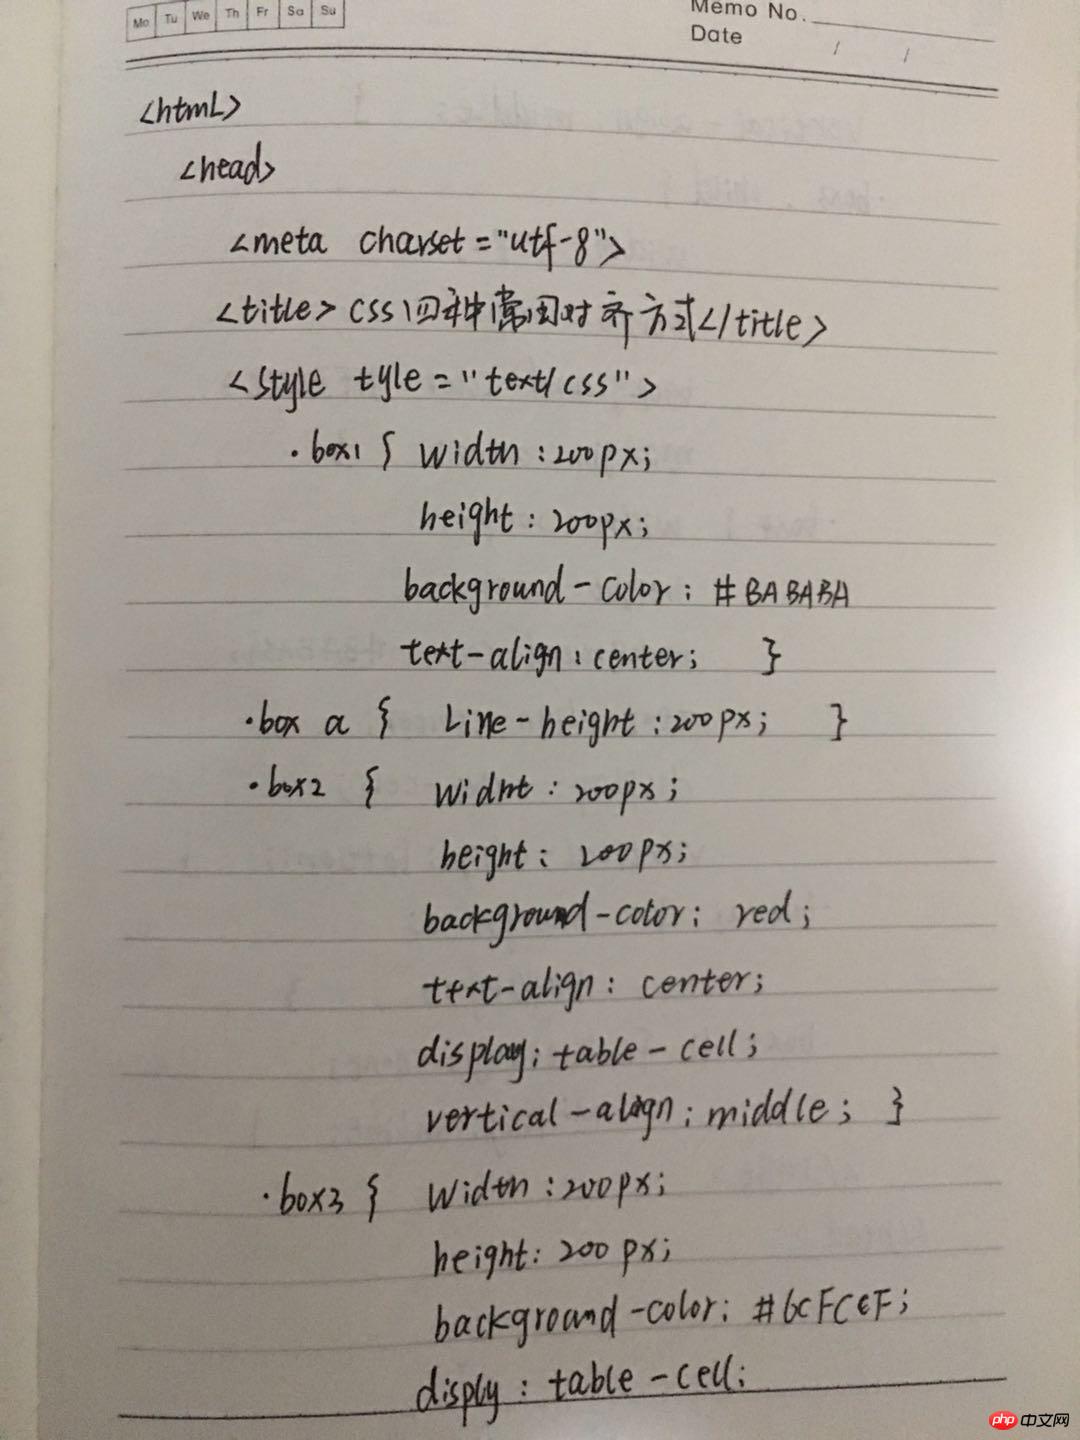 Mo Tu We Th Fr Sa Su
Memo No.
Date / /
<html>
<head>
<meta charset="utf-8">
<title>css四种常用对齐方式</title>
<style tyle="text/css">
.box1 { width:200px;
height:200px;
background-color:#BABABA
text-align:center; }
.box a { Line-height:200px; }
.box2 { widht:200px;
height:200px;
background-color:red;
text-align:center;
display:table-cell;
vertical-align:middle; }
.box3 { width:200px;
height:200px;
background-color:#6CFCEF;
disply:table-cell:
php中文网